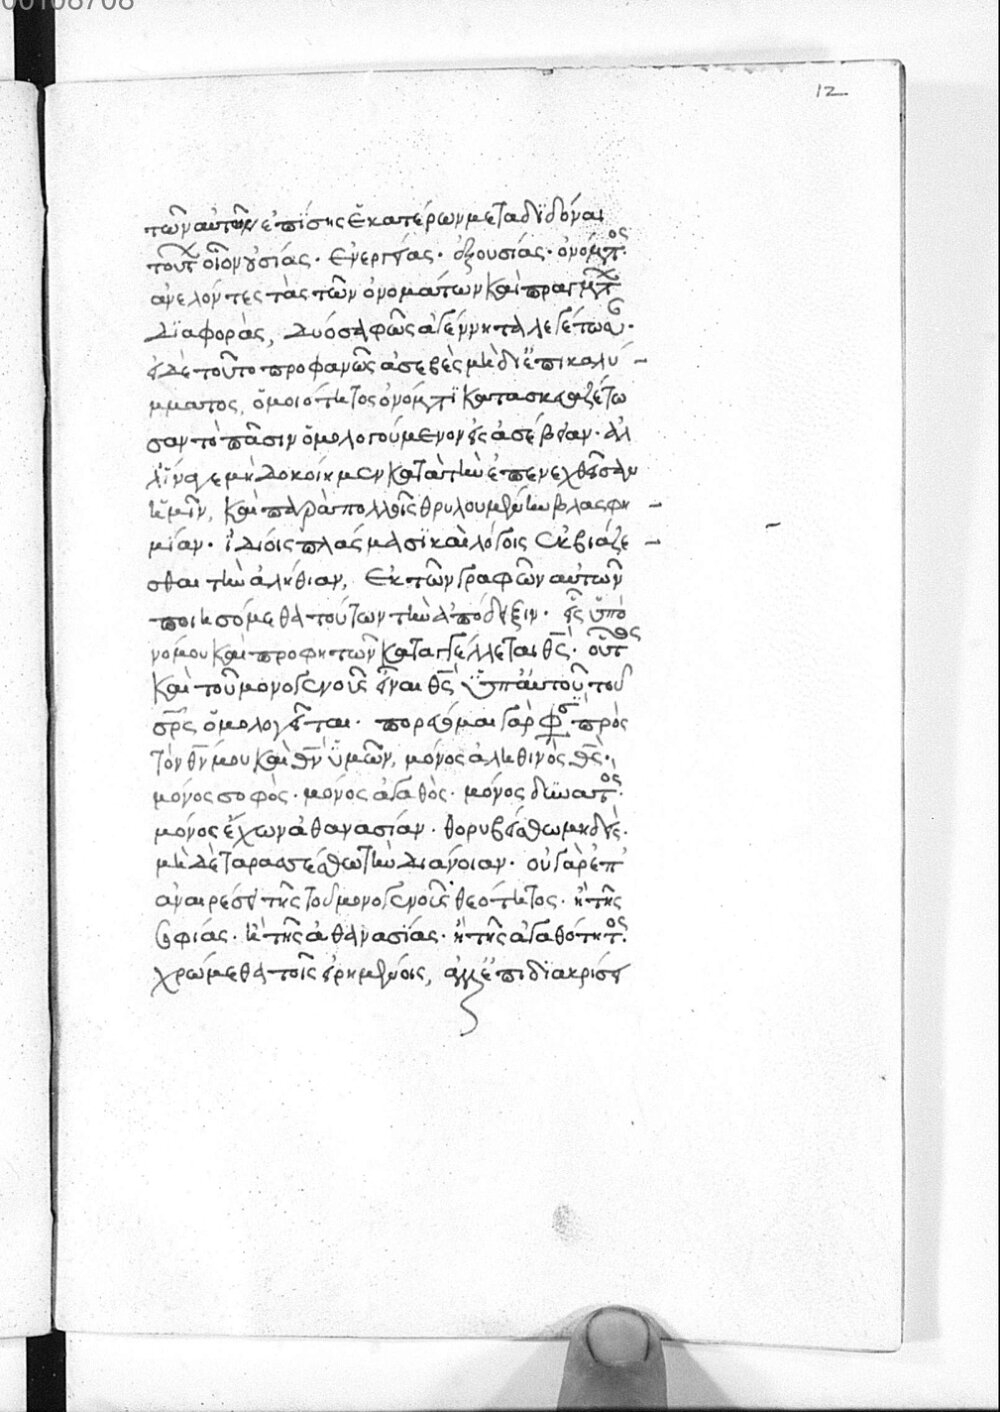 00108708
12
τῶν αὐτῶν ἐπίσης ἑκατέρων μεταδιδόναι
τουτ οἷον οὐσίας· ἐνεργείας· ἐξουσίας· ὀνόματος·
ἀνελόντες τὰς τῶν ὀνομάτων καὶ πραγμάτ
διαφορὰς, δύο σαφῶς ἀγέννητα λεγέτωσ·
εἰ δὲ τοῦτο προφανῶς ἀσεβὲς μὴ δι' ἐπικαλύ
μματος, ὁμοιότητος ὀνόματι κατασκευαζέτω
σαν τὸ πᾶσιν ὁμολογούμενον εἰς ἀσέβειαν· ἀλ
λ' ἵνα γε μὴ δοκοίημεν κατὰ τὴν ἐπενεχθεῖσαν
ἡμῖν, καὶ παρὰ πολλοῖς θρυλουμένην βλασφη
μίαν· ἰδίοις πλάσμασι καὶ λόγοις ἐκβιάζε
σθαι τὴν ἀλήθιαν, ἐκ τῶν γραφῶν αὐτῶν
ποιησόμεθα τούτων τὴν ἀπόδειξιν· εἷς ὑπὸ
νόμου καὶ προφητῶν καταγγέλλεται θς· οὗτος
καὶ τοῦ μονογενοῦς εἶναι θς ὑπ' αὐτοῦ τοῦ
σρς ὁμολογεῖται· πορεύομαι γὰρ φησι πρὸς
τὸν θν μου καὶ θν ὑμῶν, μόνος ἀληθινὸς θς·
μόνος σοφὸς· μόνος ἀγαθὸς· μόνος δυνατός·
μόνος ἔχων ἀθανασίαν· θορυβείσθω μηδεὶς·
μὴ δὲ ταραττέσθω τὴν διάνοιαν· οὐ γὰρ ἐπ'
ἀναιρέσει τῆς τοῦ μονογενοῦς θεότητος· ἢ τῆς
σοφίας· ἢ τῆς ἀθανασίας· ἢ τῆς ἀγαθότητος·
χρώμεθα τοῖς εἰρημένοις, ἀλλ' ἐπὶ διακρίσει